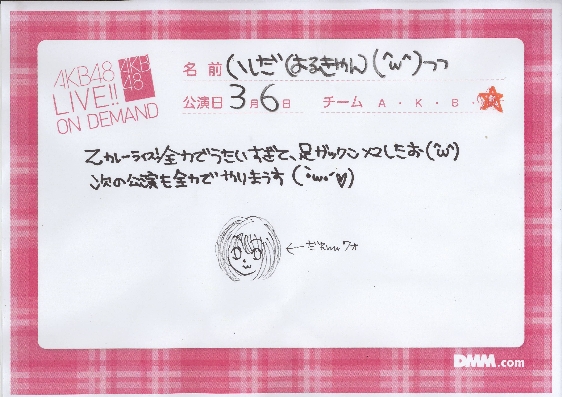 AKB48
LIVE!!
ON DEMAND
AKB
48
名前 いしだ(はるきゃん)(^ω^)っっ
公演日 3月6日 チーム A・K・B・
全力でうたいすぎて、足ガックンㄨㄡしたお(^ω^)
次の公演も全力でやりまうす(・ω・´♡)
DMM.com